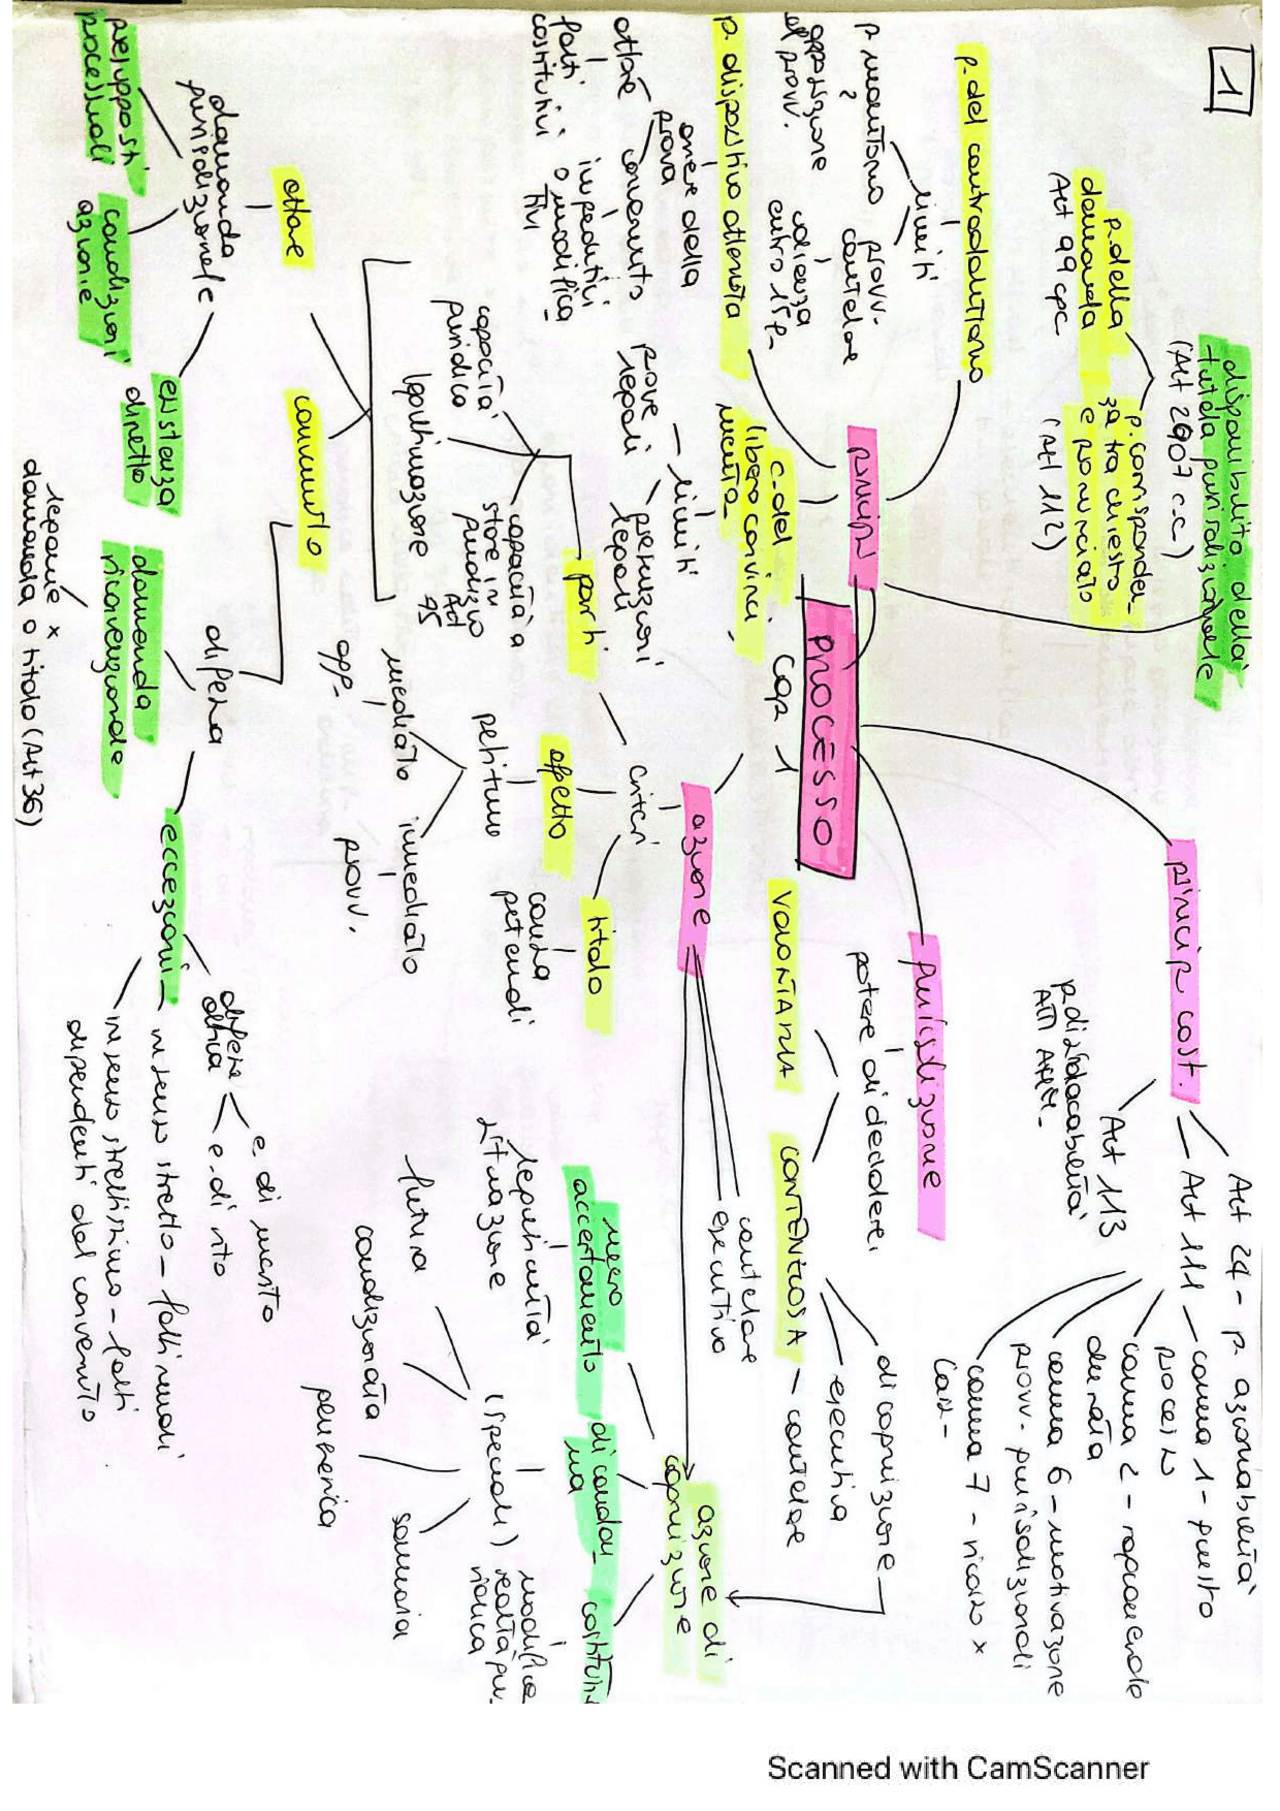 1
disponibilità della
tutela giurisdizionale
(Art 2907 c.c.)
p. della
domanda
Art 99 cpc
p. corrisponden_
za tra chiesto
e pronunciato
(Art 112)
p. del contraddittorio
limiti
p monitorio
opposizione
al provv.
provv.
cautelare
udienza
entro 15 g.
p. dispositivo attenuato
onere della
prova
attore
fatti
costitutivi
convenuto
impeditivi
o modifica_
tivi
principi
c. del
libero convinci_
mento
limiti
prove
legali
presunzioni
legali
PROCESSO
cap 1
princip cost.
Art 24 - p azionabilità
Art 111 - comma 1 - giusto
processo
comma 2 - ragionevole
durata
comma 6 - motivazione
provv. giurisdizionali
comma 7 - ricorso x
cass.
Art 113
p. di sindacabilità
ATTI AMM.
giurisdizione
potere di decidere
VOLONTARIA
CONTENZIOSA
di cognizione
esecutiva
cautelare
azione
cautelare
esecutivo
azione di
cognizione
mero
accertamento
legittimità
situazione
di condan_
na
(speciali)
futura
condizionata
generica
sommaria
costitutiva
modifica
realtà giu_
ridica
criteri
parti
capacità
giuridica
legittimazione
capacità a
stare in
giudizio
Art
75
oggetto
petitum
mediato
immediato
provv.
titolo
causa
petendi
attore
domanda
giurisdizionale
presupposti
processuali
condizioni
azione
esistenza
diritto
convenuto
difesa
domanda
riconvenzionale
legame x
domanda o titolo (Art 36)
eccezioni
difese
e. di merito
e. di rito
in senso stretto - fatti
in senso strettissimo - fatti
dipendenti dal convenuto
Scanned with CamScanner